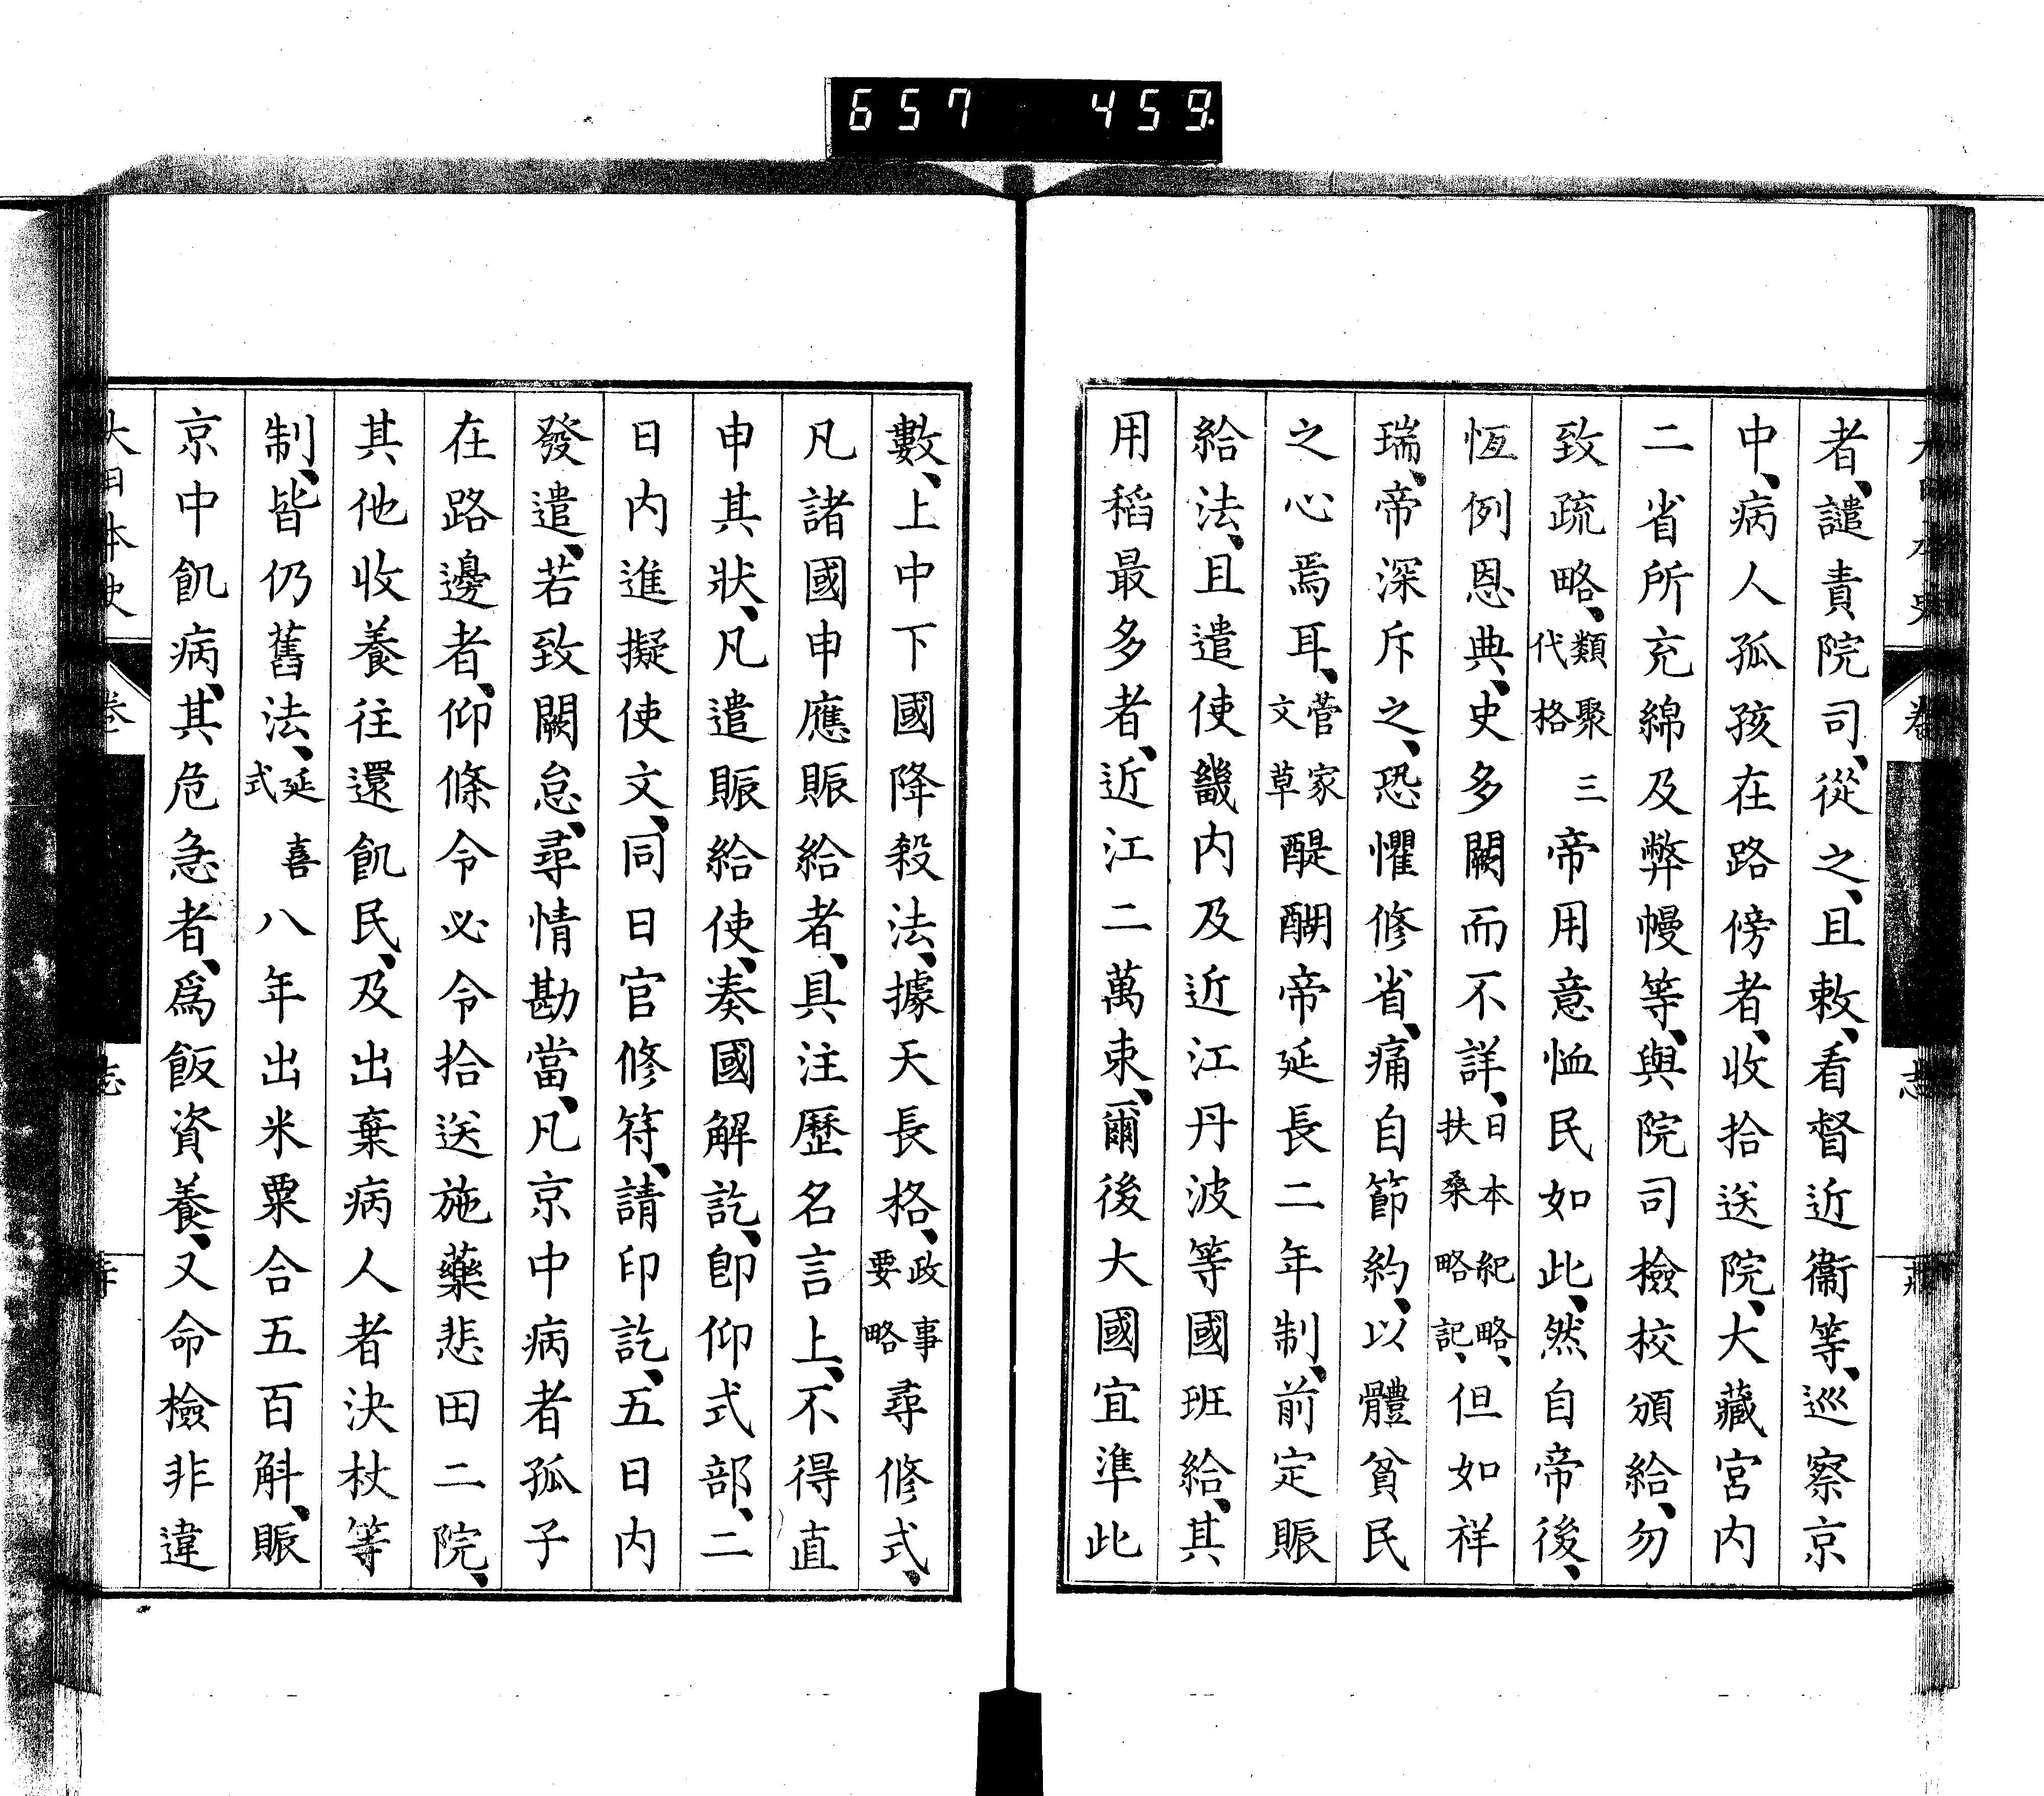 657 459
者、譴責院司、從之、且敕、看督近衞等、巡察京
中、病人孤孩在路傍者、收拾送院、大藏宮内
二省所充綿及弊幔等、與院司檢校頒給、勿
致疏略、類聚三代格帝用意恤民如此、然自帝後、
恆例恩典、史多闕而不詳、日本紀略、扶桑略記、但如祥
瑞、帝深斥之、恐懼修省、痛自節約、以體貧民
之心焉耳、菅家文草醍醐帝延長二年制、前定賑
給法、且遣使畿内及近江丹波等國班給、其
用稻最多者、近江二萬束、爾後大國宜準此
數、上中下國降殺法、據天長格、政事要略尋修式、
凡諸國申應賑給者、具注歷名言上、不得直
申其狀、凡遣賑給使、奏國解訖、卽仰式部、二
日内進擬使文、同日官修符、請印訖、五日内
發遣、若致闕怠、尋情勘當、凡京中病者孤子
在路邊者、仰條令必令拾送施藥悲田二院、
其他收養往還飢民、及出棄病人者決杖等
制、皆仍舊法、延喜式八年出米粟合五百斛、賑
京中飢病、其危急者、爲飯資養、又命檢非違
大日本史
卷
志